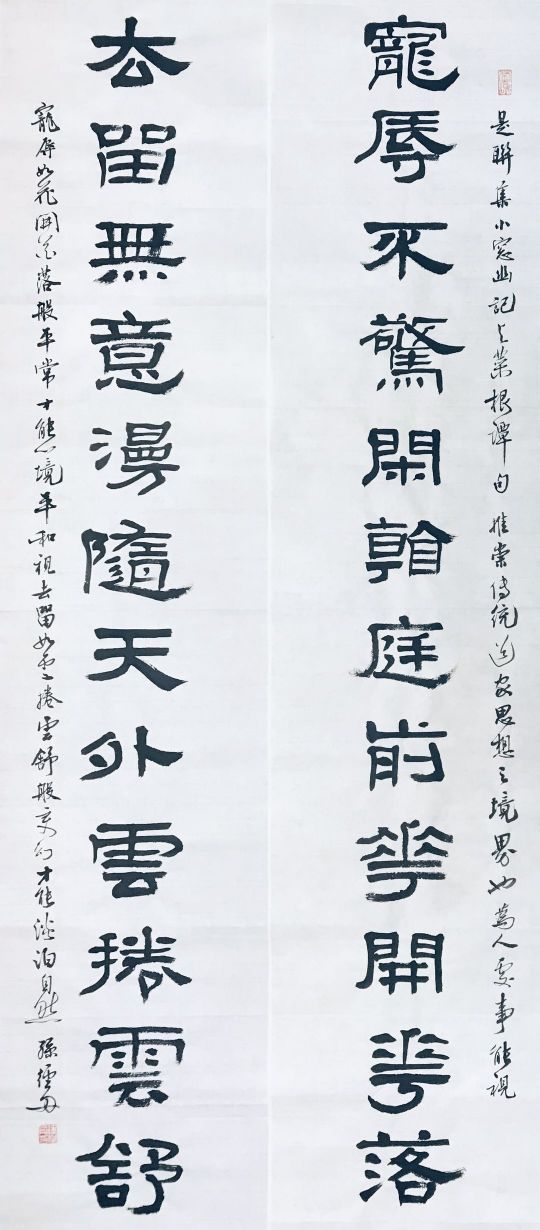 是聯集小窗幽記与菜根譚句推崇傳統道家思想之境界也為人處事能視
寵辱不驚閑看庭前華開華落
去留無意漫隨天外雲捲雲舒
寵辱如花開花落般平常才能心境平和視去留如雲捲雲舒般變幻才能淡泊自然 孫